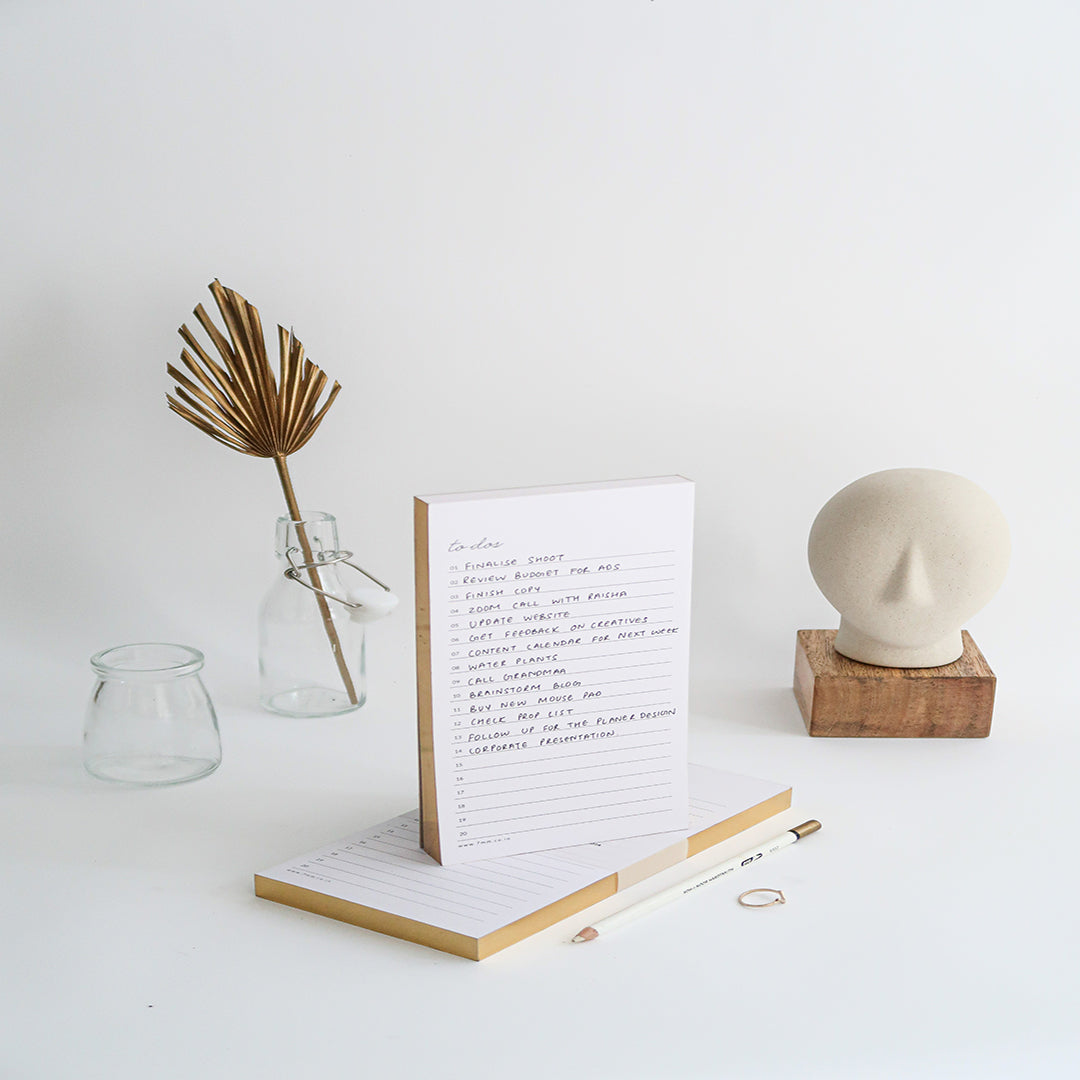 to dos
01 FINALISE SHOOT
02 REVIEW BUDGET FOR ADS
03 FINISH COPY
04 ZOOM CALL WITH RAISHA
05 UPDATE WEBSITE
06 GET FEEDBACK ON CREATIVES
07 CONTENT CALENDAR FOR NEXT WEEK
08 WATER PLANTS
09 CALL GRANDMAA
10 BRAINSTORM BLOG
11 BUY NEW MOUSE PAD
12 CHECK PROP LIST
13 FOLLOW UP FOR THE PLANER DESIGN
14 CORPORATE PRESENTATION.
15
16
17
18
19
20
15
16
17
18
19
20